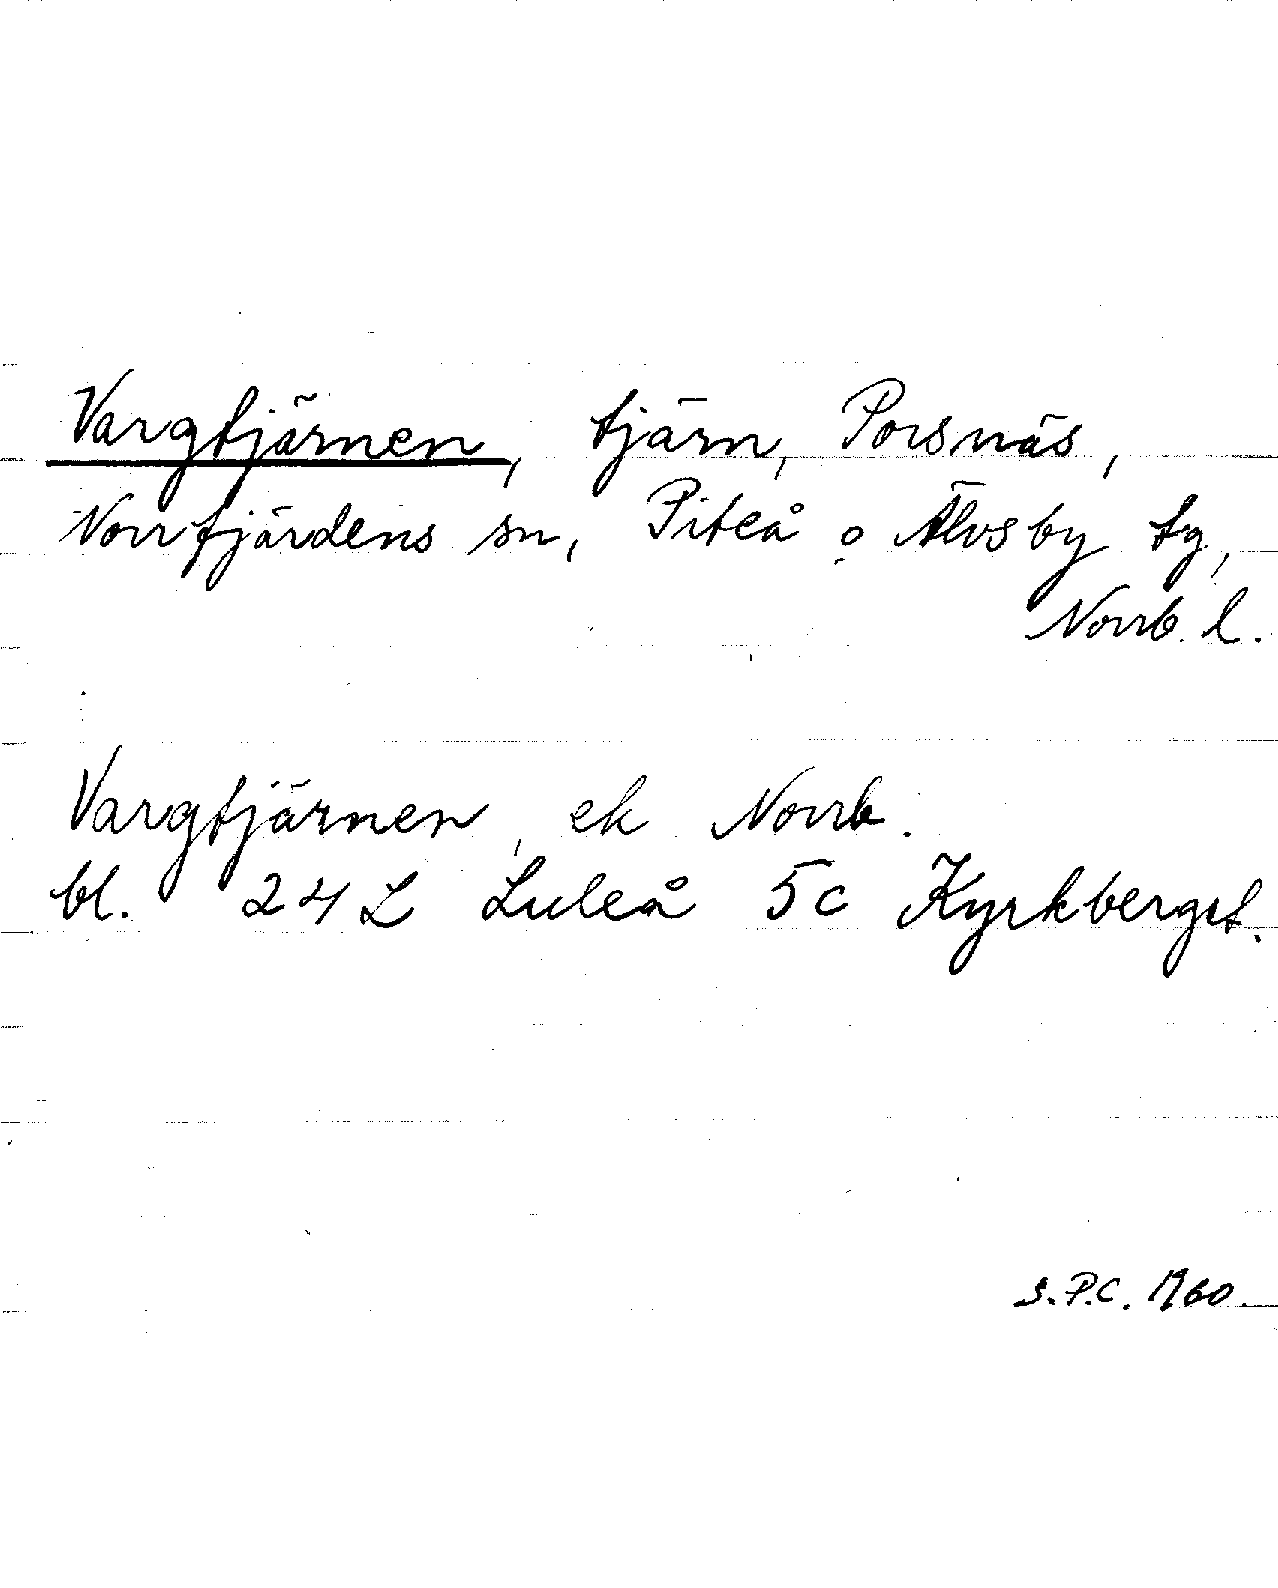 Vargtjärnen, tjärn, Porsnäs,
Norrfjärdens sn, Piteå o Älvsby tg,
Norrb. l.
Vargtjärnen, ek Norrb.
bl. 24 L Luleå 5c Kyrkberget.
S.P.C. 1960.